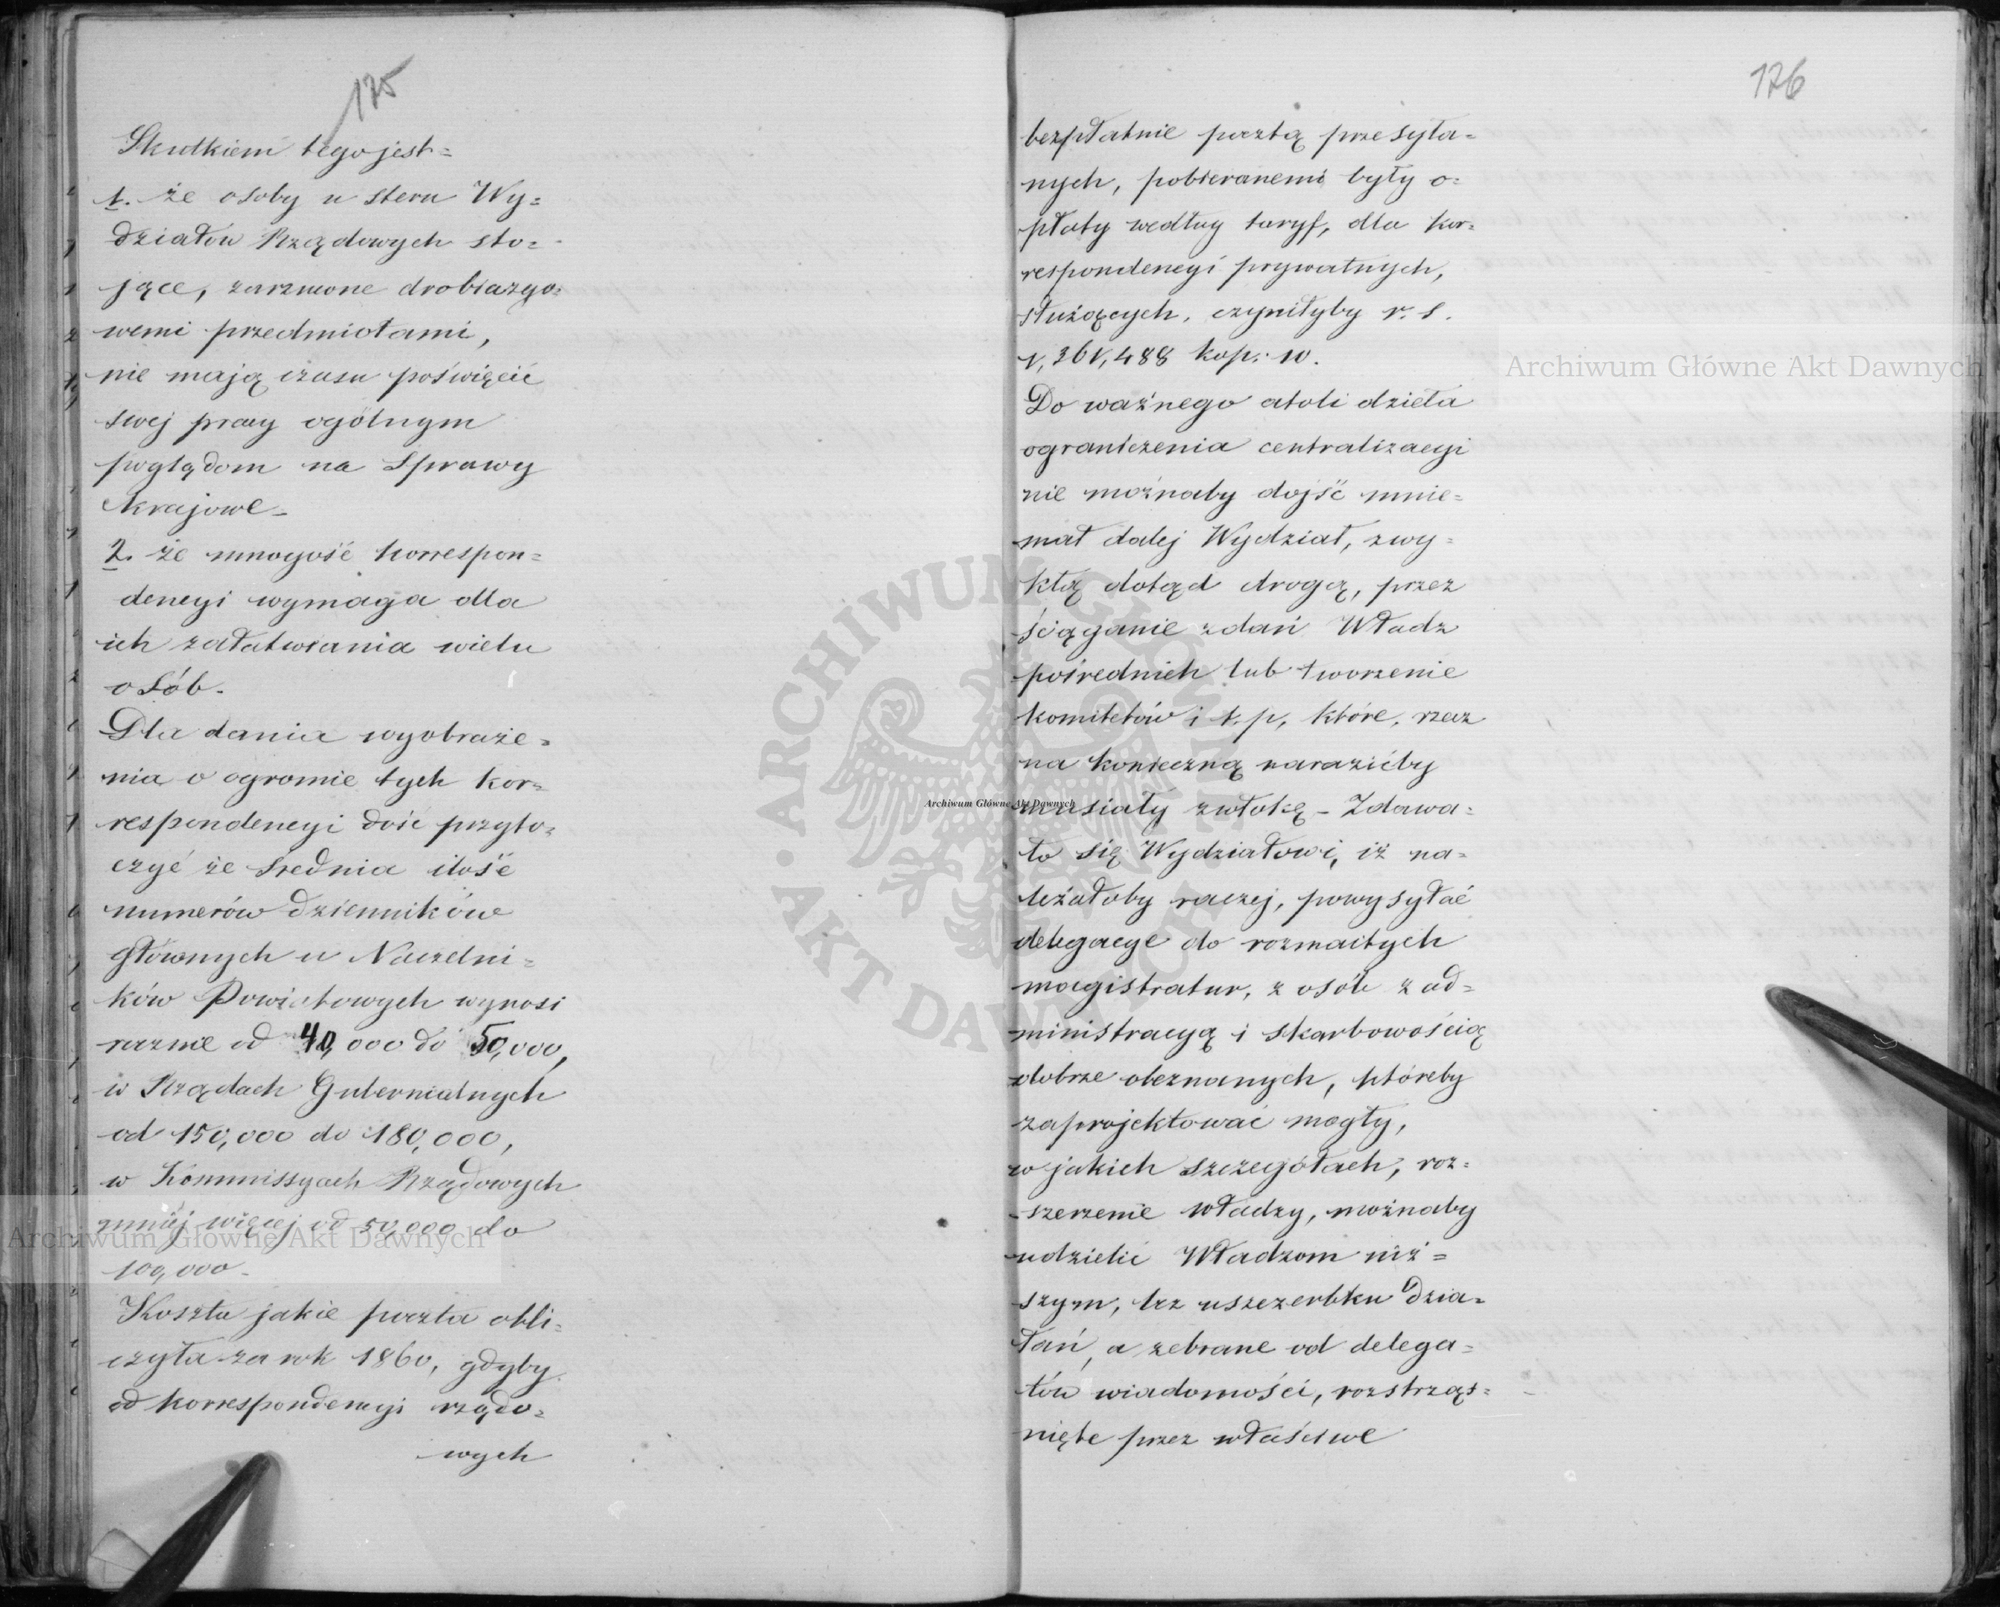 175
Skutkiem tego jest=
1. że osoby u steru Wy=
działów Rządowych sto=
jące, zarzucone drobiazgo=
wemi przedmiotami,
nie mają czasu poświęcić
swej pracy ogólnym
poglądom na sprawy
krajowe_
2. że mnogość korrespon=
dencyi wymaga dla
ich załatwiania wielu
osób.
Dla dania wyobraże=
nia o ogromie tych kor=
respondencyi dość przyto=
czyć że średnia ilość
numerów dzienników
głównych u Naczelni=
ków Powiatowych wynosi
rocznie od 40,000 do 50,000,
w Rządach Gubernialnych
od 150,000 do 180,000,
w Kommissyach Rządowych
mniej więcej od 50,000 do
100,000_
Koszta jakie poczta obli=
czyła za rok 1860, gdyby
od korrespondencyi rządo=
wych
126
bezpłatnie pocztą przesyła=
nych, pobieranemi były o=
płaty według taryf, dla kor=
respondencyi prywatnych,
służących, czyniłyby r. s.
1,361,488 kop: 10.
Do ważnego atoli dzieła
ograniczenia centralizacyi
nie możnaby dojść mnie=
mał dalej Wydział, zwy=
kłą dotąd drogą, przez
ściąganie zdań Władz
pośrednich lub tworzenie
komitetów i t. p, które, rzecz
na konieczną narazićby
musiały zwłokę – Zdawa=
ło się Wydziałowi, iż na=
leżałoby raczej, powysyłać
delegacye do rozmaitych
magistratur, z osób z ad=
ministracyą i skarbowością
dobrze obeznanych, któreby
zaprojektować mogły,
w jakich szczegółach, roz=
szerzenie władzy, możnaby
udzielić Władzom niż=
szym, bez uszczerbku dzia=
łań, a zebrane od delega=
tów wiadomości, rozstrząś=
nięte przez właściwe
Archiwum Główne Akt Dawnych
Archiwum Główne Akt Dawnych
Archiwum Główne Akt Dawnych
ARCHIWUM GŁÓWNE · AKT DAWNYCH ·